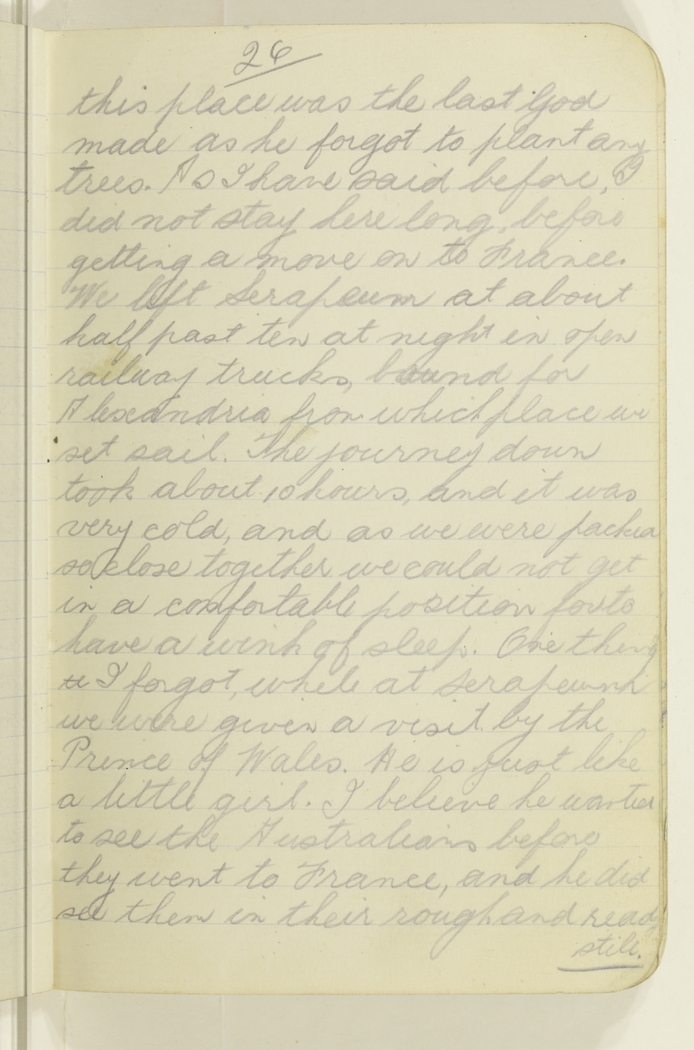 26
this place was the last God
made as he forgot to plant any
trees. As I have said before, I
did not stay here long, before
getting a move on to France.
We left Serapeum at about
half past ten at night in open
railway trucks, bound for
Alexandria from which place we
set sail. The journey down
took about 10 hours, and it was
very cold, and as we were packed
so close together we could not get
in a comfortable position for to
have a wink of sleep. One thing
I forgot, while at Serapeum
we were given a visit by the
Prince of Wales. He is just like
a little girl. I believe he wanted
to see the Australians before
they went to France, and he did
see them in their rough and ready
stile.